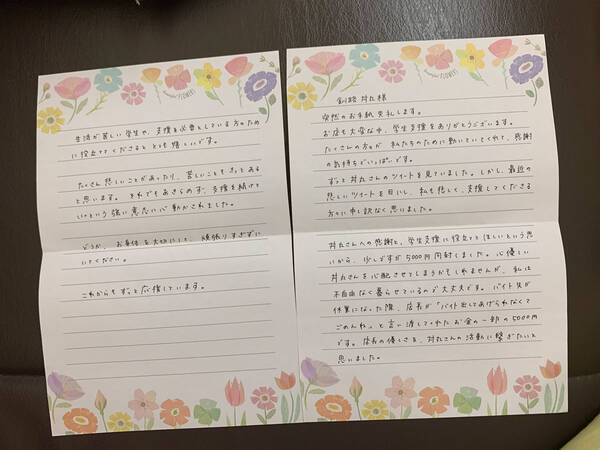 釧路 丼丸様
突然のお手紙失礼します。
お店も大変な中、学生支援をありがとうございます。
たくさんの方が私たちのために動いていてくれて、感謝
の気持ちでいっぱいです。
ずっと丼丸さんのツイートを見ていました。しかし、最近の
悲しいツイートを目にし、私も悲しく、支援してくださる
方々に申し訳なく思いました。
丼丸さんへの感謝と、学生支援に役立ててほしいという思
いから、少しですが5000円同封しました。心優しい
丼丸さんを心配させてしまうかもしれませんが、私は
不自由なく暮らせているので大丈夫です。バイト先が
休業になった際、店長が「バイト出してあげられなくて
ごめんね。」と言い渡してくれたお金の一部の5000円
です。店長の優しさを、丼丸さんの活動に繋ぎたいと
思いました。
生活が苦しい学生や、支援を必要としている方のため
に役立ててくださるととても嬉しいです。
たくさん悲しいことがあったり、苦しいこともきっとある
と思います。それでもあきらめず、支援を続けて
いくという強い意志に心動かされました。
どうか、お身体を大切にし、頑張りすぎずに
いてください。
これからもずっと応援しています。
FLOWERS
FLOWERS